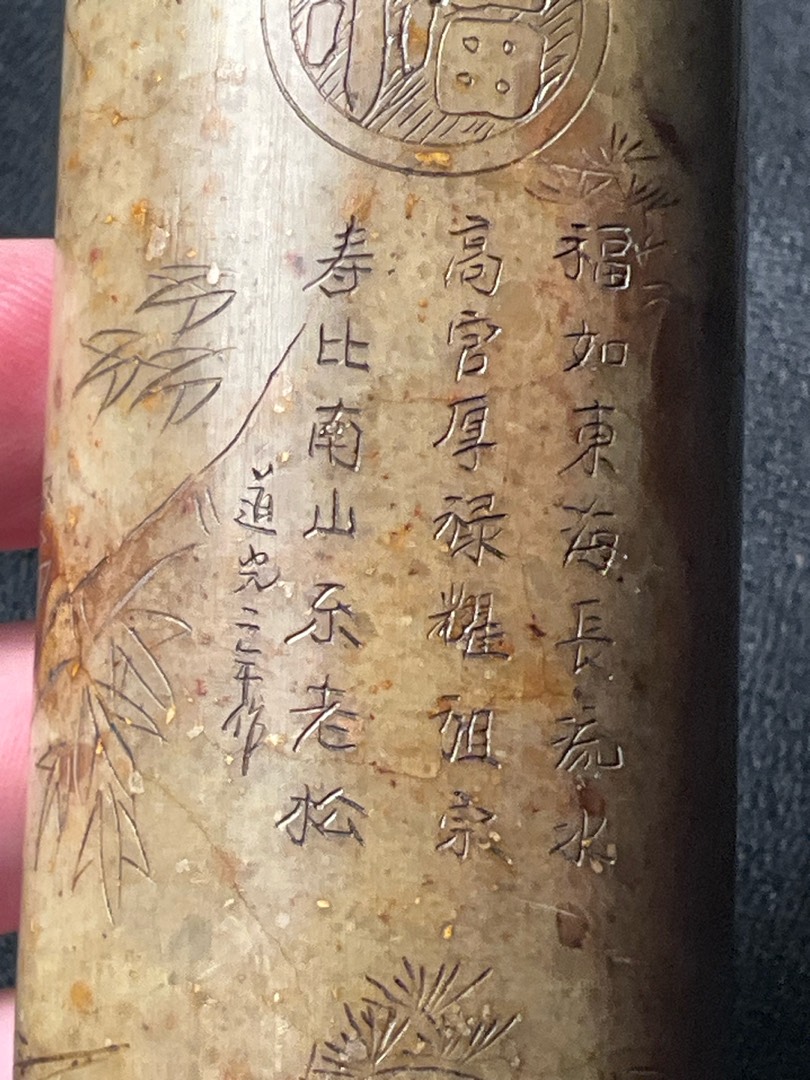 福如東海長流水
高官厚禄耀祖宗
寿比南山不老松
道光二年作